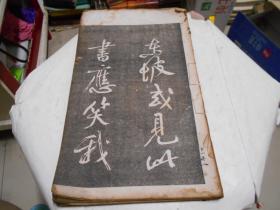 东坡或見此
書應笑我